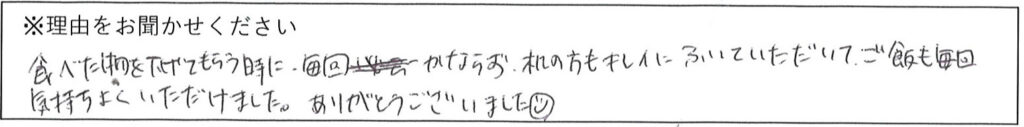 ※理由をお聞かせください
食べた物を下げてもらう時に、毎回 かならず、机の方もキレイに ふいていただいて、ご飯も毎回
気持ちよくいただけました。ありがとうございました☺